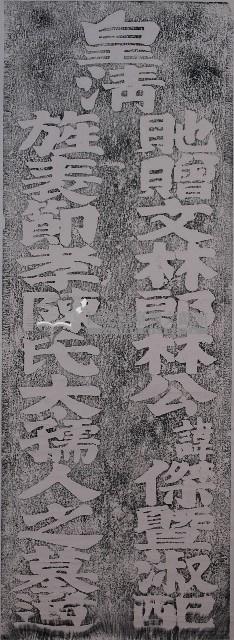 皇清
貤贈文林郎林公諱傑暨淑配
旌表節孝陳氏大孺人之墓道